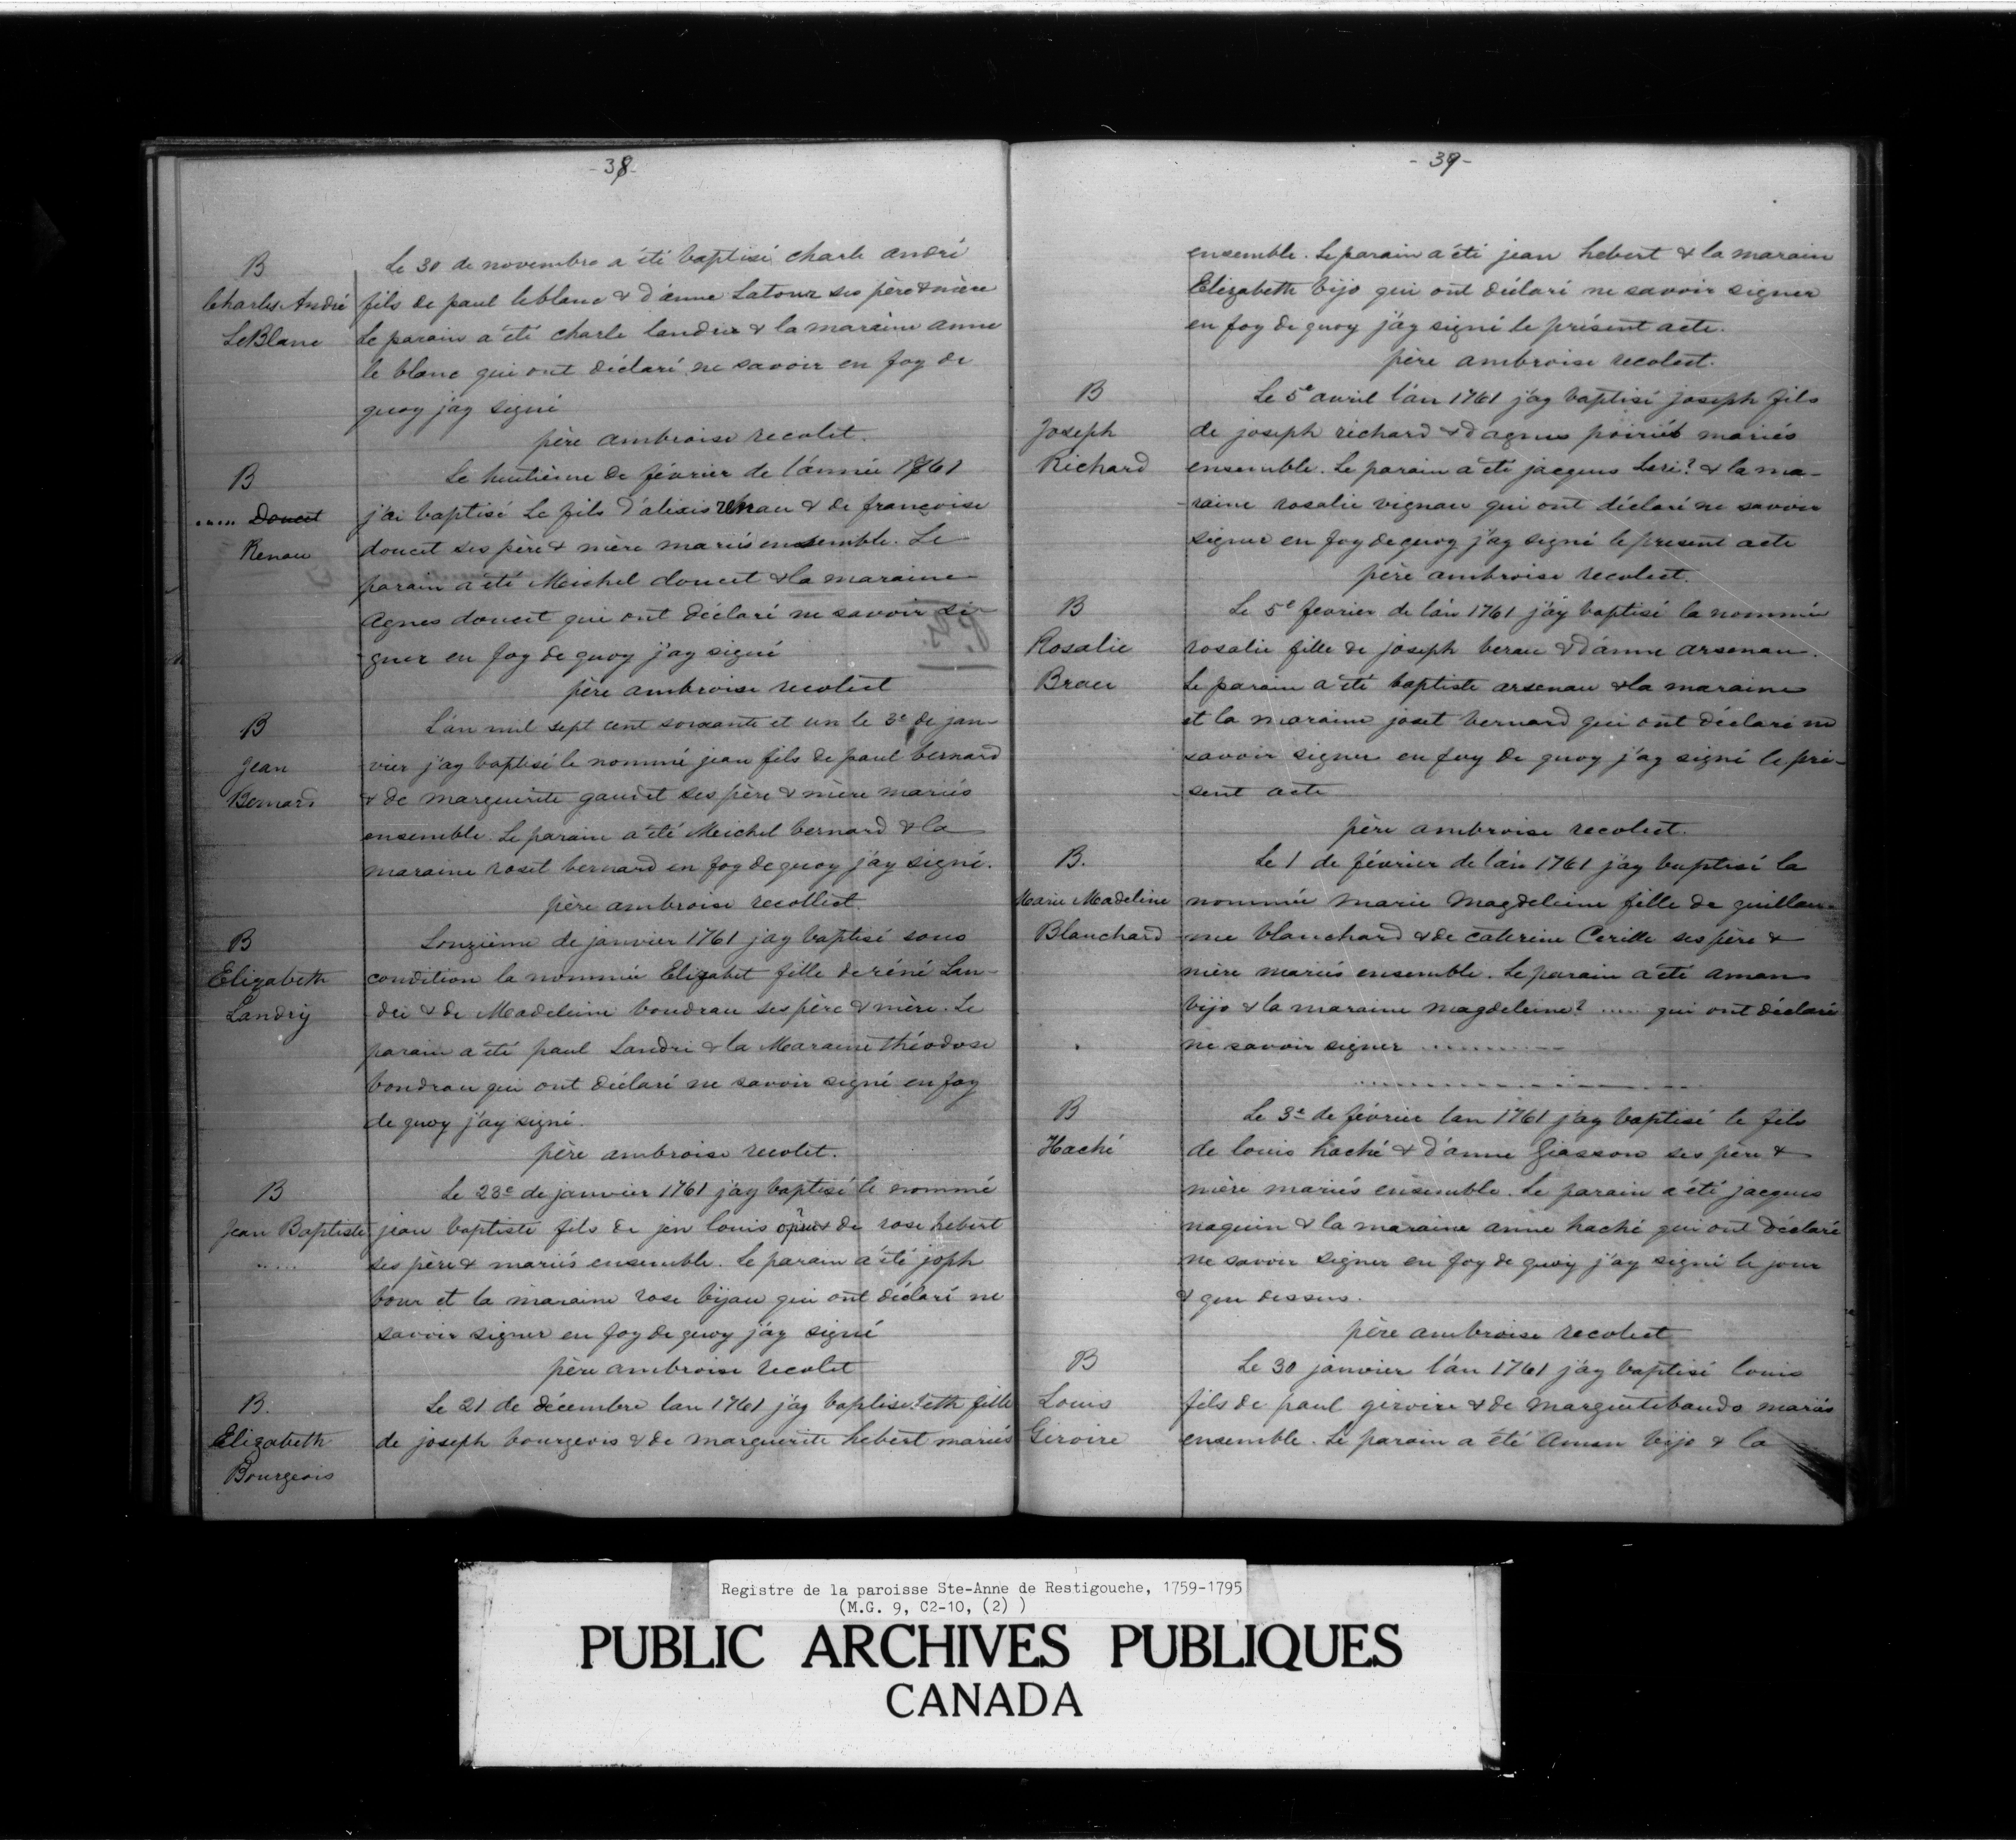 - 38 -
B
Charles André
LeBlanc
Le 30 de novembre a été baptisé charle andré
fils de paul leblanc & d'anne Latour ses père & mère
Le parain a été charle landrie & la maraine anne
le blanc qui ont déclaré ne savoir en foy de
quoy j'ay signé
père ambroise recolet.
B
..... Doucet
Renau
Le huitième de février de l'année 1761
j'ai baptisé Le fils d'alexis renau & de françoise
doucet ses père & mère mariés ensemble. Le
parain a été Meichel doucet & la maraine
Agnes doucet qui ont déclaré ne savoir si-
gner en foy de quoy j'ay signé
père ambroise recolect
B
Jean
Bernard
L'an mil sept cent soixante et un le 3e de jan-
vier j'ay baptisé le nommé jean fils de paul bernard
& de marguerite gaudet ses père & mère mariés
ensemble. Le parain a été Meichel bernard & la
maraine roset bernard en foy de quoy j'ay signé.
père ambroise recollect.
B
Elizabeth
Landry
Lonzième de janvier 1761 j'ay baptisé sous
condition la nommée Elizabet fille de réné Lan-
dri & de Madeleine boudrau ses père & mère. Le
parain a été paul Landri & la Maraine théodose
boudrau qui ont déclaré ne savoir signé en foy
de quoy j'ay signé.
père ambroise recolet.
B
Jean Baptiste
.....
Le 23e de janvier 1761 j'ay baptisé le nommé
jean baptiste fils de jen louis & de rose hebert
ses père & mariés ensemble. Le parain a été joph
bour et la maraine rose bijau qui ont déclaré ne
savoir signer en foy de quoy j'ay signé
père ambroise recolet
B.
Elizabeth
Bourgeois
Le 21 de décembre lan 1761 j'ay baptise ? eth fille
de joseph bourgeois & de marguerite hebert mariés
- 39 -
ensemble. Le parain a été jean hebert & la marain
Elizabeth bijo qui ont déclaré ne savoir signer
en foy de quoy j'ay signé le présent acte.
père ambroise recolect.
B
Joseph
Richard
Le 5e avril l'an 1761 j'ay baptisé joseph fils
de joseph richard & d agnes poiriés mariés
ensemble. Le parain a été jacques Leri? & la ma-
-raine rosalie vignau qui ont déclaré ne savoir
signer en foy de quoy j'ay signé le present acte
père ambroise recolect.
B
Rosalie
Brau
Le 5e fevrier de l'an 1761 j'ay baptisé la nommée
rosalie fille de joseph berau & d'anne arsenau.
Le parain a été baptiste arsenau & la maraine
et la maraine joset bernard qui ont déclaré ne
savoir signer en foy de quoy j'ay signé le pré-
-sent acte
père ambroise recolect.
B.
Marie Madeleine
Blanchard
Le 1 de février de l'an 1761 j'ay baptisé la
nommée marie magdeleine fille de guillau-
-me blanchard & de caterine Cerille ses père &
mère mariés ensemble. Le parain a été aman
bijo & la maraine magdeleine? ..... qui ont déclaré
ne savoir signer ..........
B
Haché
Le 3e de février lan 1761 j'ay baptisé le fils
de louis haché & d'anne Giasson ses père &
mère mariés ensemble. Le parain a été jacques
naquin & la maraine anne haché qui ont déclaré
ne savoir signer en foy de quoy j'ay signé le jour
& que dessus.
père ambroise recolect
B
Louis
Giroire
Le 30 janvier l'an 1761 j'ay baptisé louis
fils de paul giroire & de margueite baudo mariés
ensemble. Le parain a été Aman bijo & la
Registre de la paroisse Ste-Anne de Restigouche, 1759-1795
(M.G. 9, C2-10, (2) )
PUBLIC ARCHIVES PUBLIQUES
CANADA